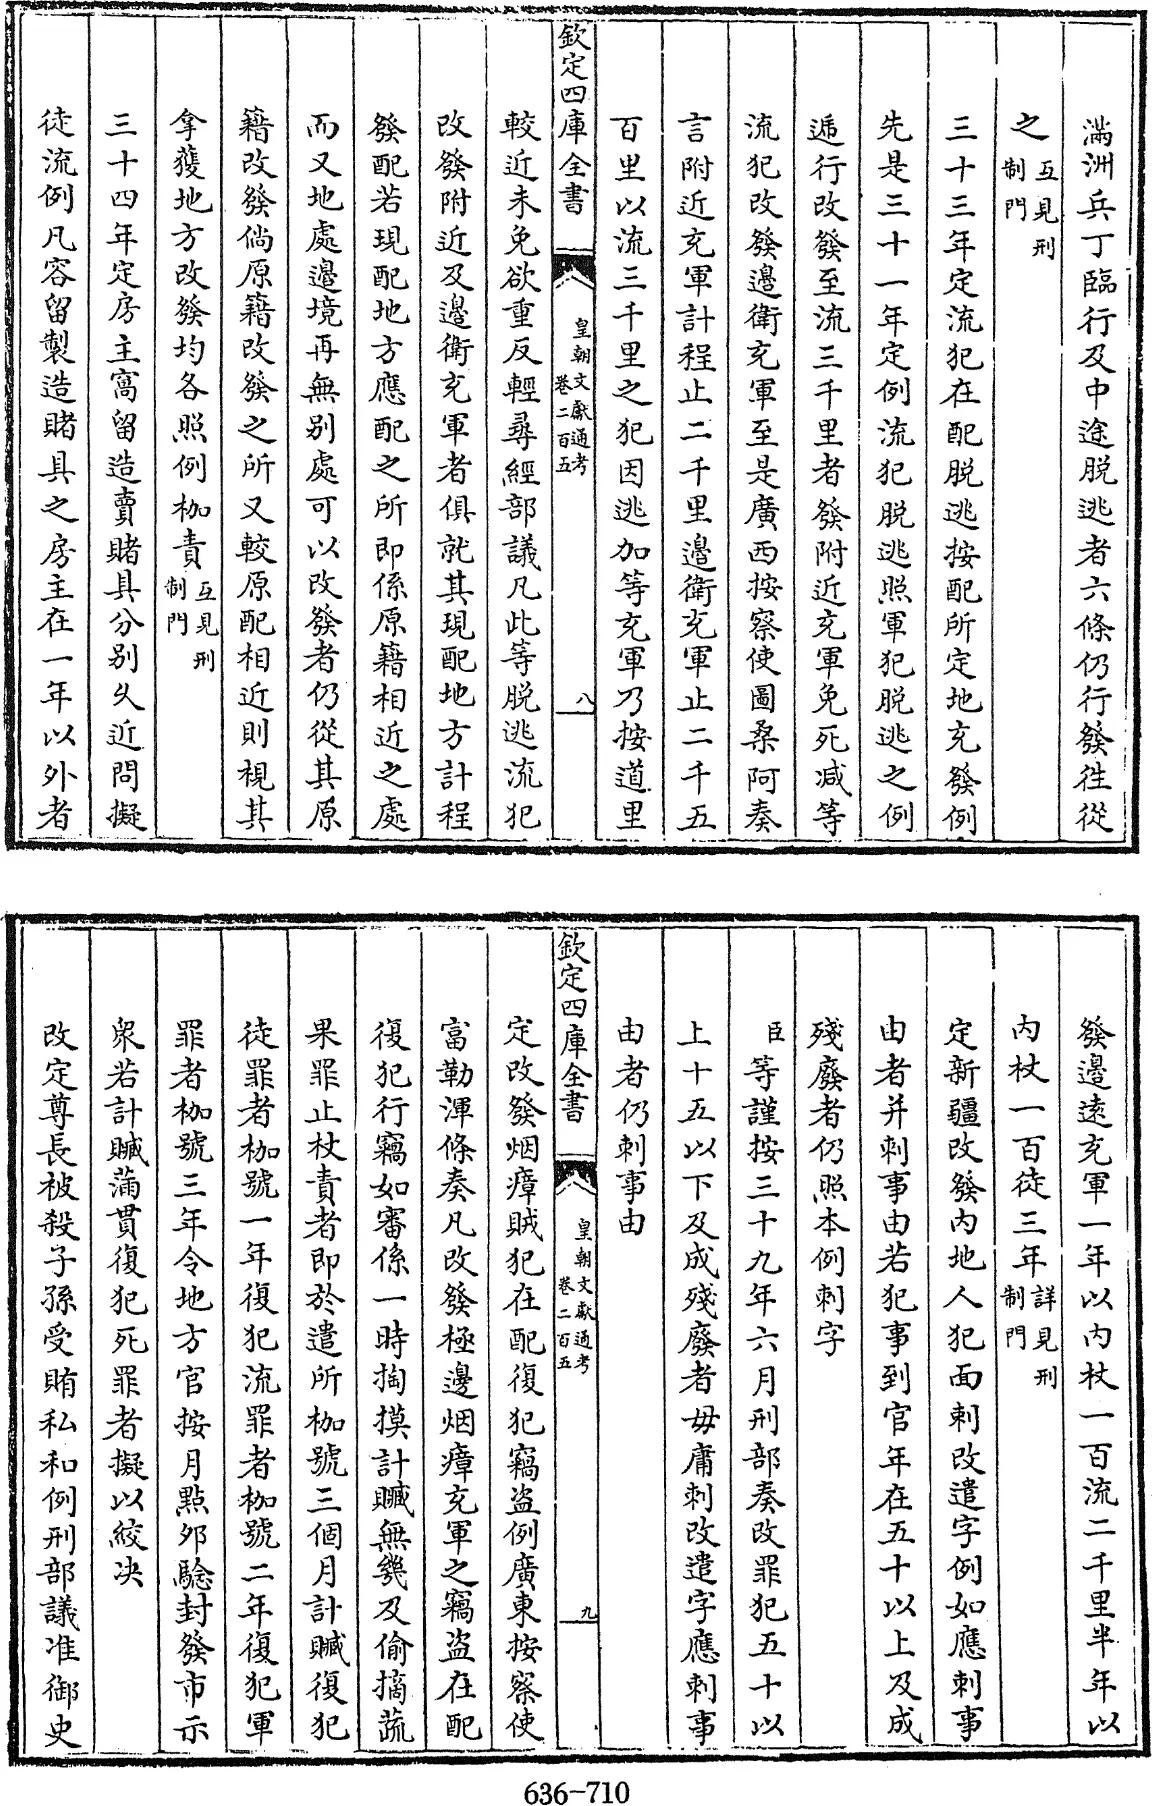 滿洲兵丁臨行及中途脫逃者六條仍行發往從
之互見刑制門
三十三年定流犯在配脫逃按配所定地充發例
先是三十一年定例流犯脫逃照軍犯脫逃之例
遞行改發至流三千里者發附近充軍免死減等
流犯改發邊衛充軍至是廣西按察使圖桑阿奏
言附近充軍計程止二千里邊衛充軍止二千五
百里以流三千里之犯因逃加等充軍乃按道里
欽定四庫全書 皇朝文獻通考卷二百五 八
較近未免欲重反輕尋經部議凡此等脫逃流犯
改發附近及邊衛充軍者俱就其現配地方計程
發配若現配地方應配之所即係原籍相近之處
而又地處邊境再無別處可以改發者仍從其原
籍改發倘原籍改發之所又較原配相近則視其
拿獲地方改發均各照例枷責互見刑制門
三十四年定房主窩留造賣賭具分別久近問擬
徒流例凡容留製造賭具之房主在一年以外者
發邊遠充軍一年以內杖一百流二千里半年以
內杖一百徒三年詳見刑制門
定新疆改發內地人犯面刺改遣字例如應刺事
由者并刺事由若犯事到官年在五十以上及成
殘廢者仍照本例刺字
臣等謹按三十九年六月刑部奏改罪犯五十以
上十五以下及成殘廢者毋庸刺改遣字應刺事
由者仍刺事由
欽定四庫全書 皇朝文獻通考卷二百五 九
定改發烟瘴賊犯在配復犯竊盜例廣東按察使
富勒渾條奏凡改發極邊烟瘴充軍之竊盜在配
復犯行竊如審係一時掏摸計贓無幾及偷摘蔬
果罪止杖責者即於遣所枷號三個月計贓復犯
徒罪者枷號一年復犯流罪者枷號二年復犯軍
罪者枷號三年令地方官按月點夘驗封發市示
衆若計贓滿貫復犯死罪者擬以絞决
改定尊長被殺子孫受賄私和例刑部議准御史
636-710